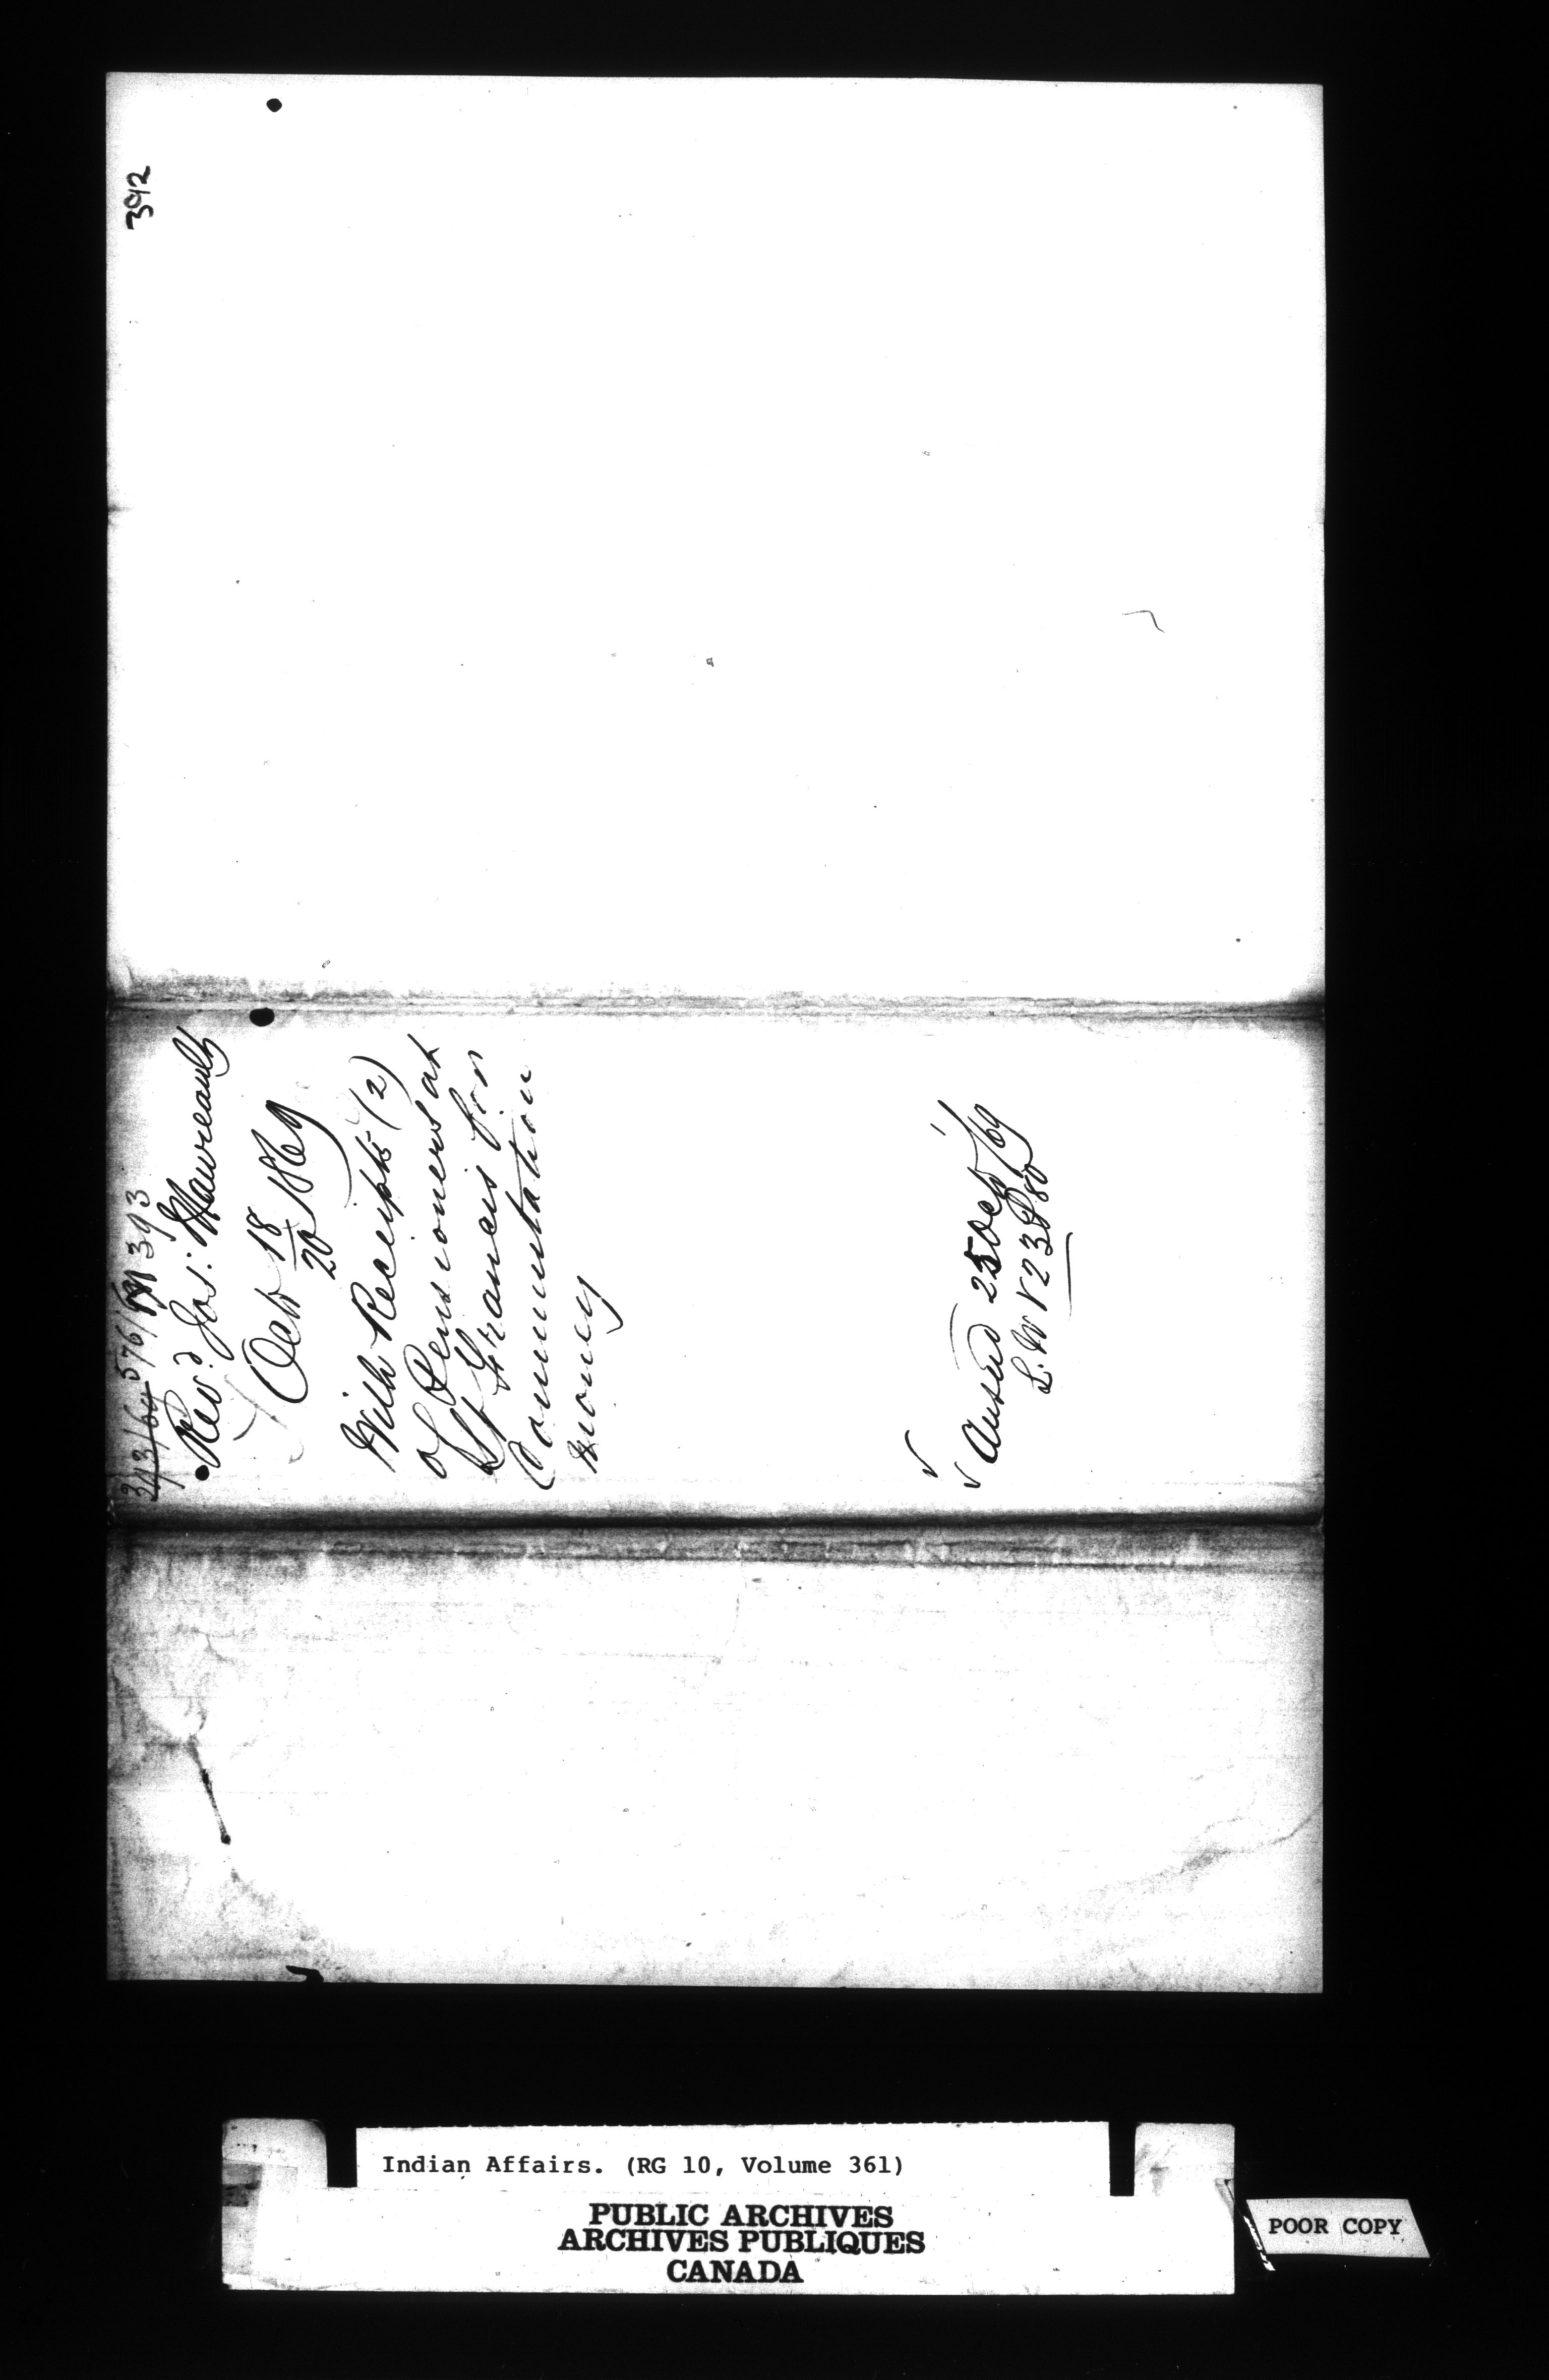 392
~~343/64~~ 576/ 393
Revd. Jos: Maureault
Octr 18/20 1869
With Receipts (2)
of Pensioners at
St Francis for
Commutation
money
Ansed 25 Oct/69
Indian Affairs. (RG 10, Volume 361)
PUBLIC ARCHIVES
ARCHIVES PUBLIQUES
CANADA
POOR COPY